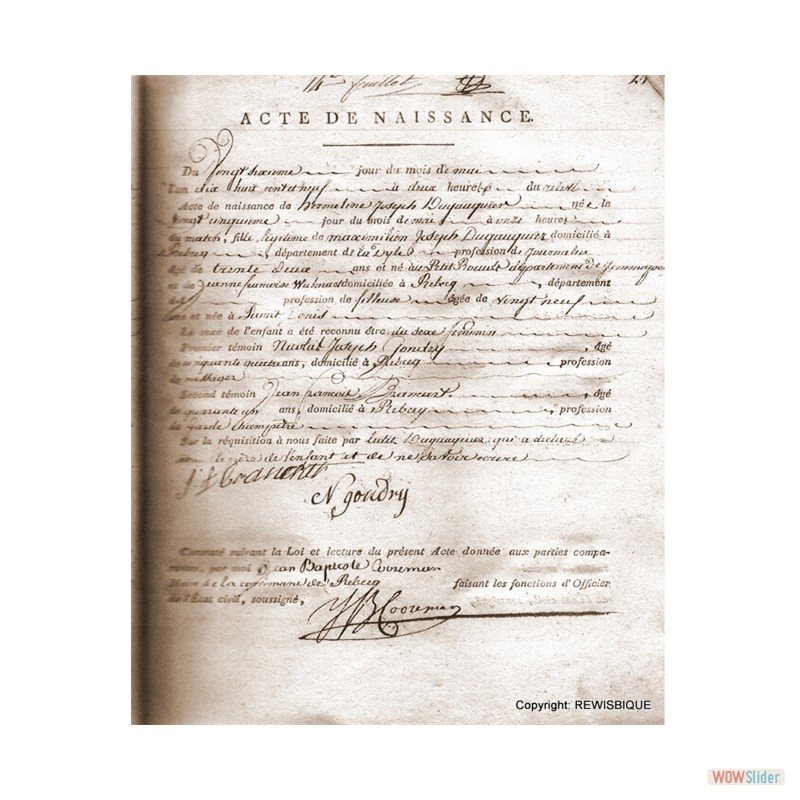 14e juillet
21
ACTE DE NAISSANCE.
Du Vingt sixieme jour du mois de mai
l'an dix huit cent et neuf à deux heures du
Acte de naissance de hermeline Joseph Dugauquier née le
Vingt cinquieme jour du mois de mai à onze heures
du matin, fille legitime de maximilien Joseph Dugauquier domicilié à
Rebecq, département de la dyle profession de Journalier
âgé de trente deux ans et né au Petit Roeulx département de Jemmappe
et de Jeanne françoise domiciliée à Rebecq, département
profession de fileuse âgée de vingt neuf
ans et née à Saint Denis
Le sexe de l'enfant a été reconnu être du sexe feminin
Premier témoin Nicolas Joseph Goudry, âgé
de cinquante quatre ans, domicilié à Rebecq profession
de messager
Second témoin Jean francois, âgé
de quarante un ans, domicilié à Rebecq, profession
de garde champetre
Sur la réquisition à nous faite par ledit Dugauquier qui a déclaré
être le père de l'enfant et de ne savoir ecrire
N goudry
Constaté suivant la Loi et lecture du présent Acte donnée aux parties compa-
rantes, par moi Jean Baptiste Cooreman
Maire de la commune de Rebecq faisant les fonctions d'Officier
de l'État civil, soussigné,
JB Cooreman
Copyright: REWISBIQUE
WOWSlider